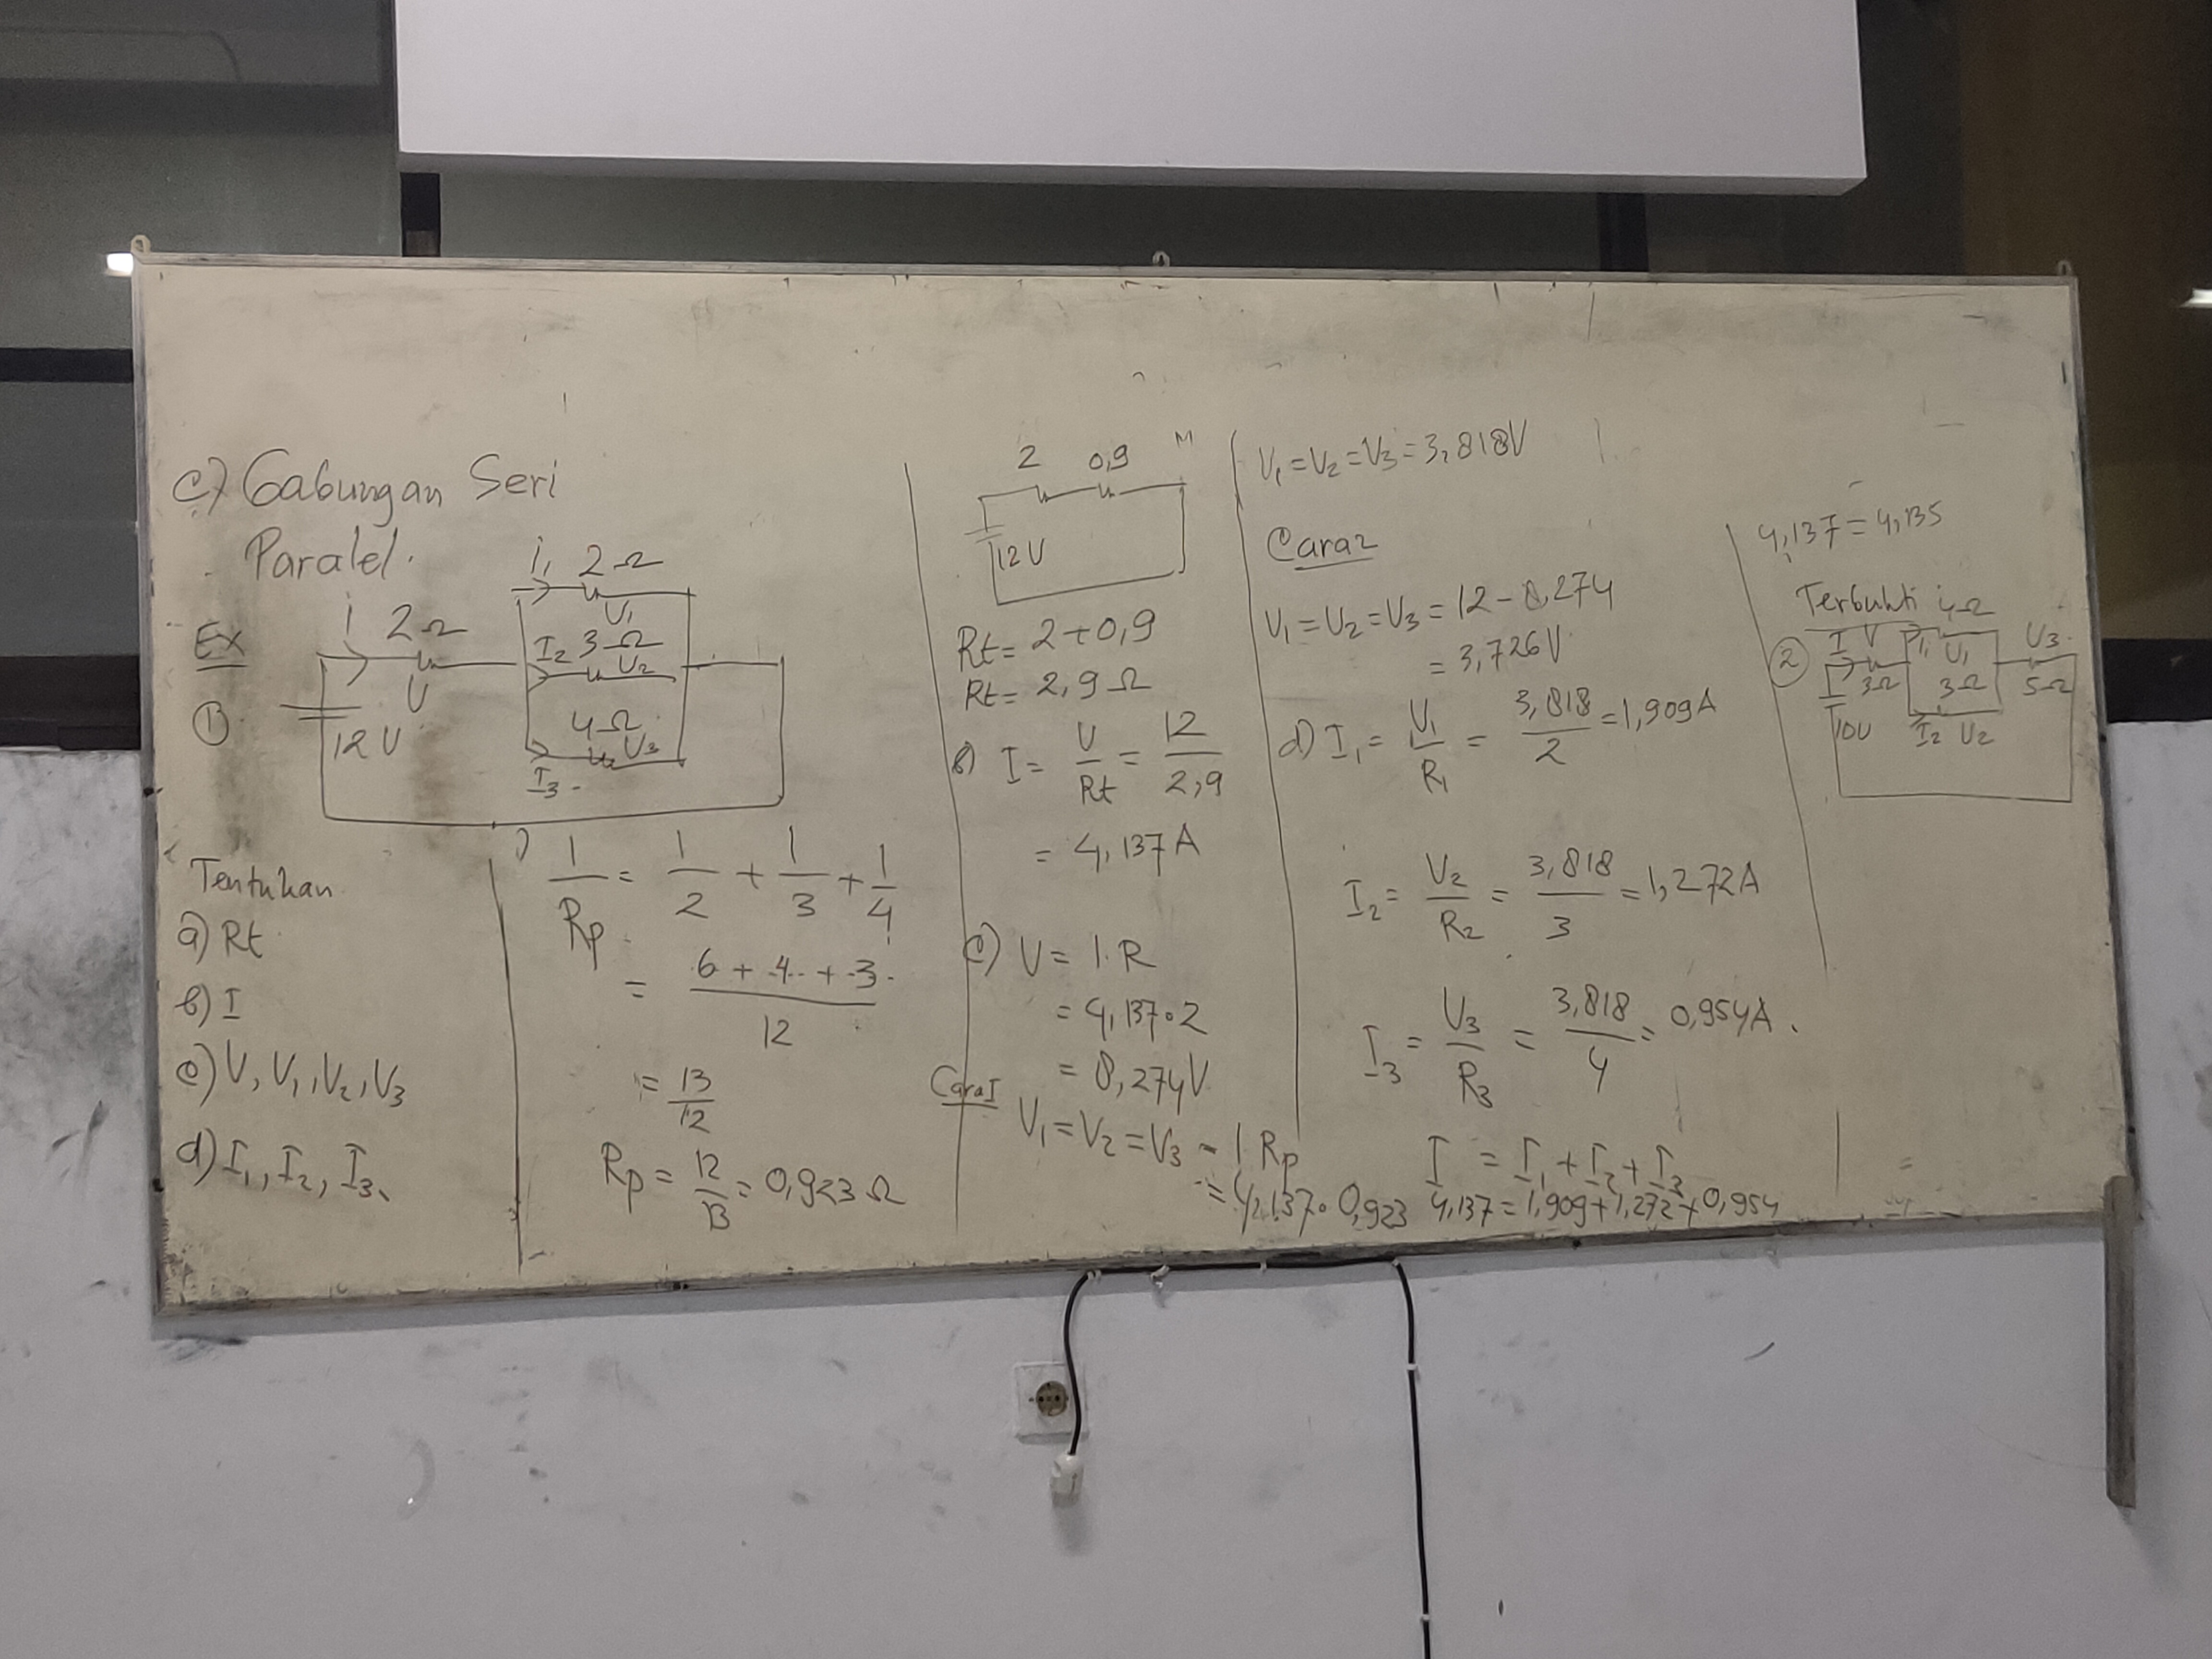 c) Gabungan Seri
Paralel.
Ex
①
i 2Ω
V
12 V
i₁ 2Ω
V₁
I₂ 3Ω
V₂
4Ω
V₃
I₃
Tentukan
a) Rt
b) I
c) V, V₁, V₂, V₃
d) I₁, I₂, I₃
1/Rp = 1/2 + 1/3 + 1/4
= (6 + 4 + 3)/12
= 13/12
Rp = 12/13 = 0,923 Ω
2 0,9
12 V
Rt = 2 + 0,9
Rt = 2,9 Ω
b) I = V/Rt = 12/2,9
= 4,137 A
c) V = I . R
= 4,137 . 2
= 8,274 V
Cara I
V₁ = V₂ = V₃ = I Rp
= 4,137 . 0,923
V₁ = V₂ = V₃ = 3,818 V
Cara 2
V₁ = V₂ = V₃ = 12 - 8,274
= 3,726 V
d) I₁ = V₁/R₁ = 3,818/2 = 1,909 A
I₂ = V₂/R₂ = 3,818/3 = 1,272 A
I₃ = V₃/R₃ = 3,818/4 = 0,954 A
I = I₁ + I₂ + I₃
4,137 = 1,909 + 1,272 + 0,954
4,137 = 4,135
Terbukti
②
I V
3Ω
10V
4Ω
I₁ V₁
3Ω
I₂ V₂
V₃
5Ω